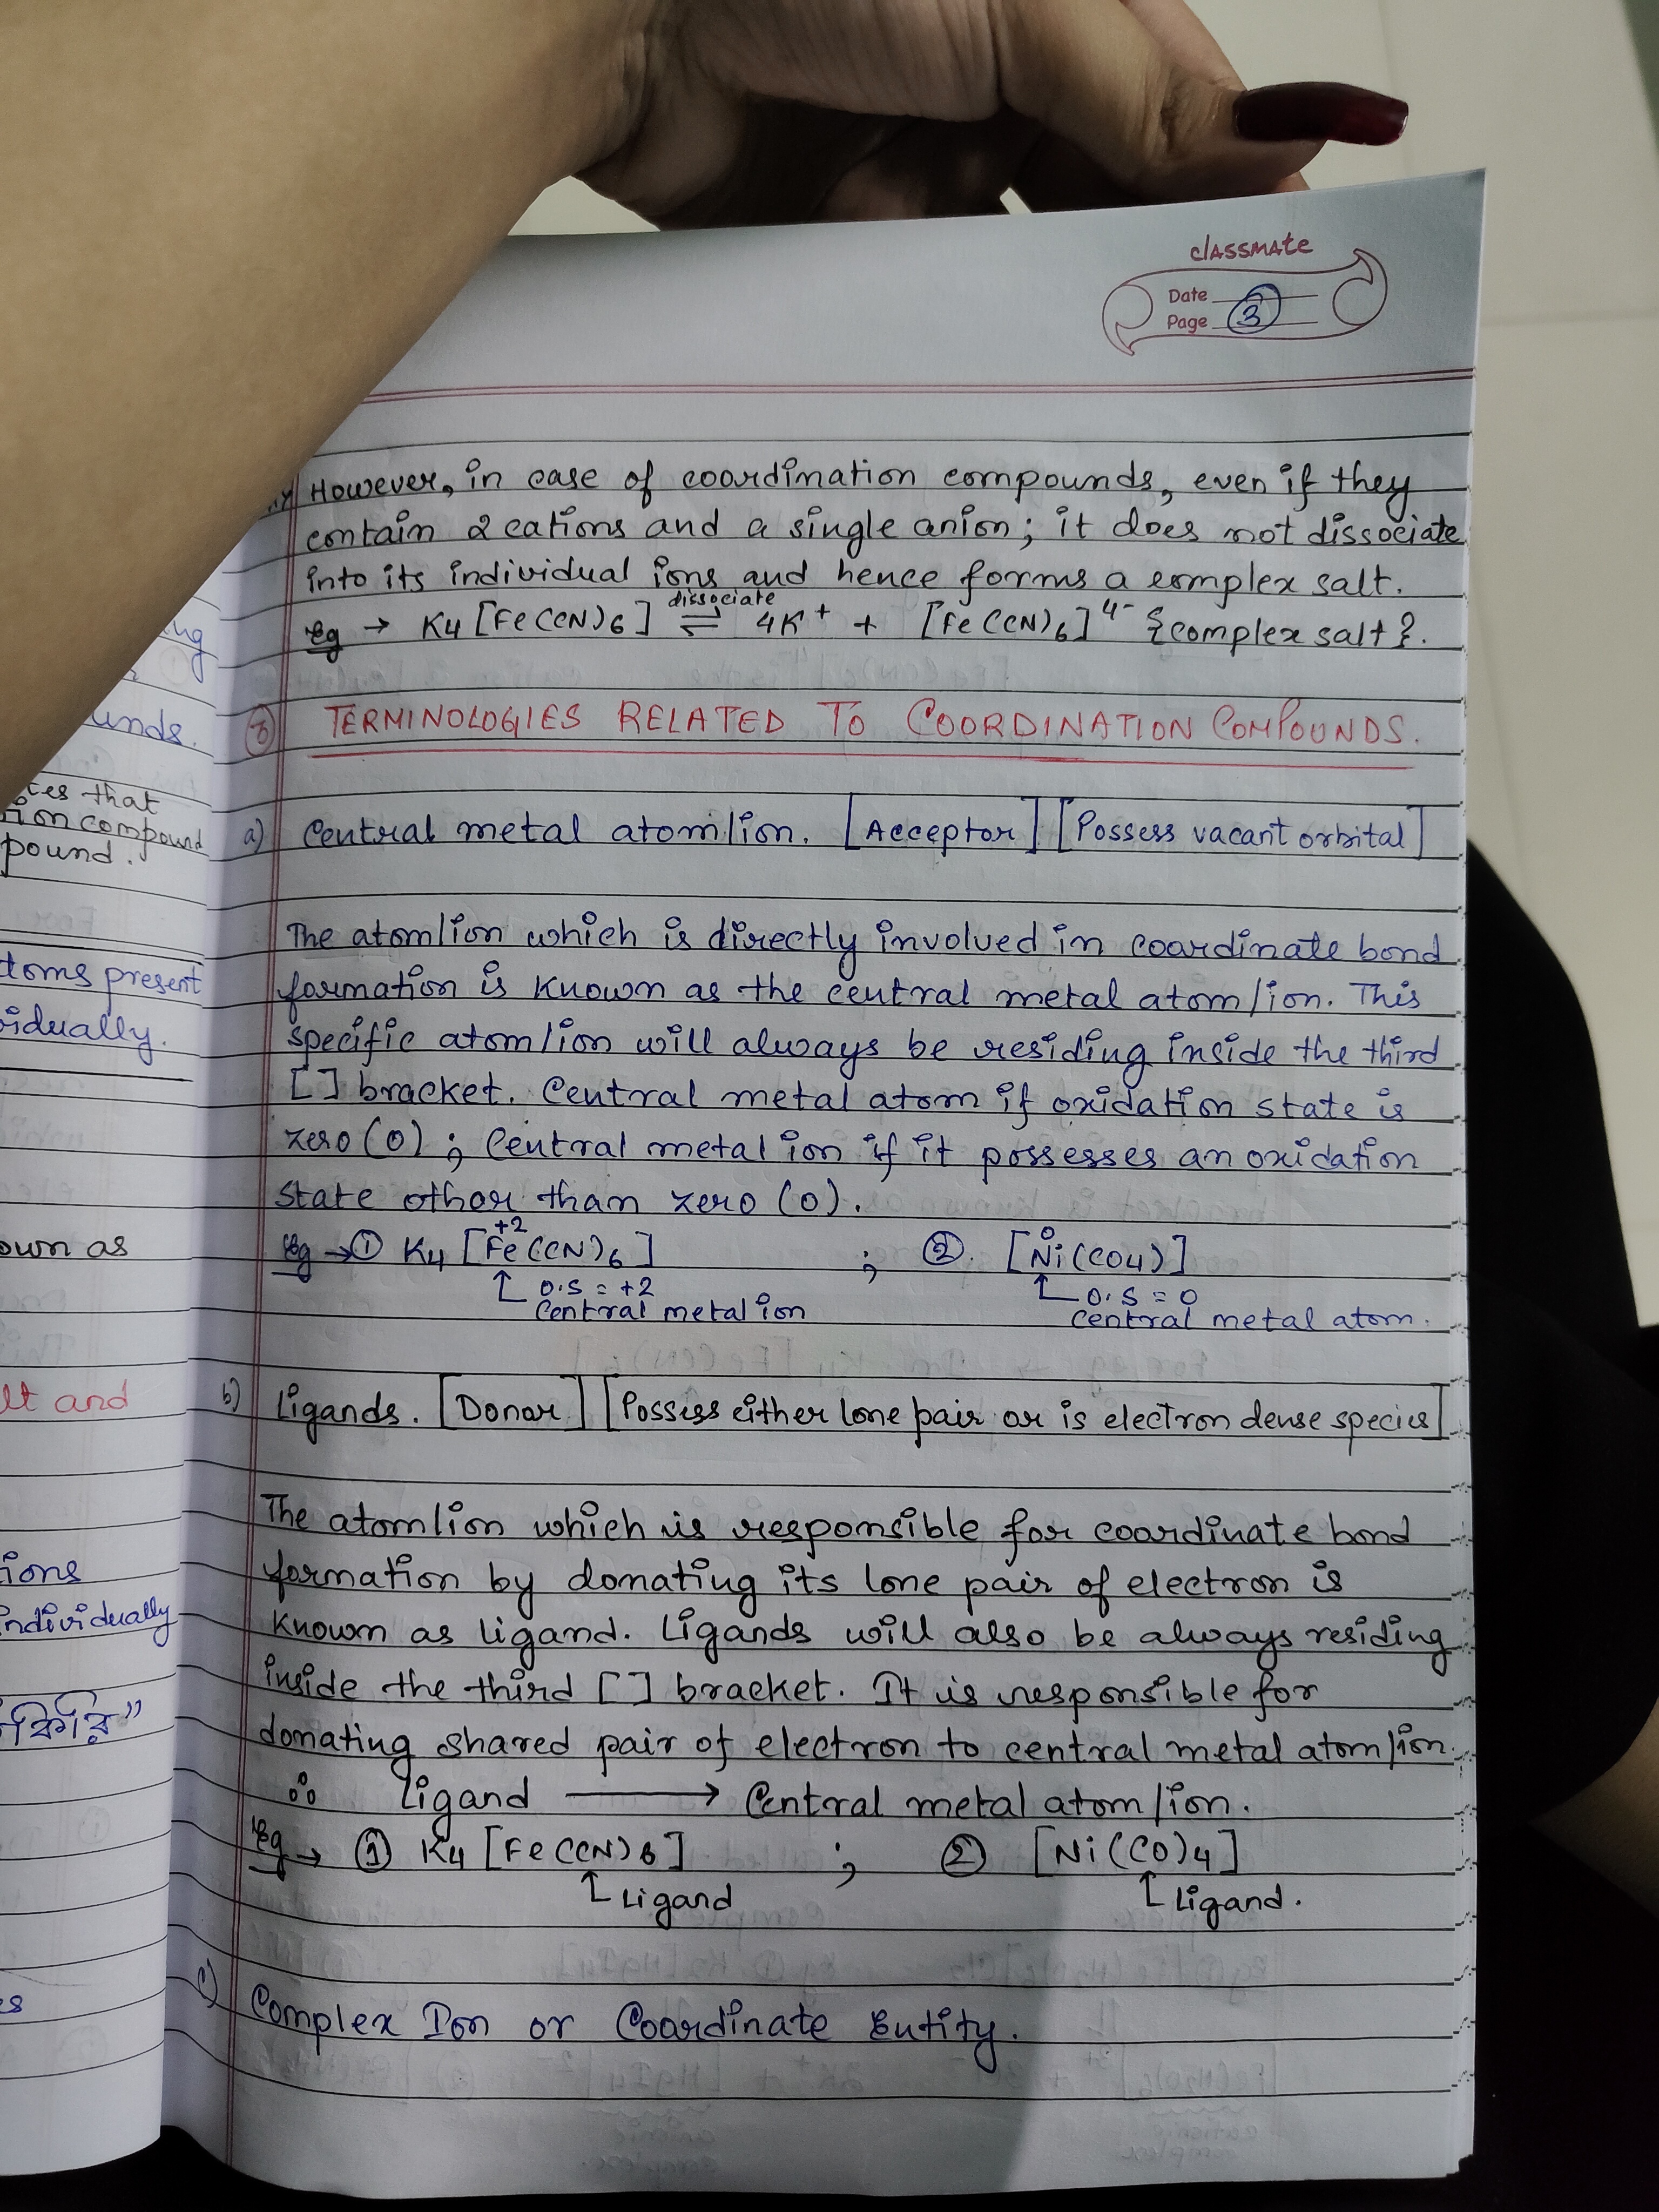 classmate
Date
Page 3
However, in case of coordination compounds, even if they
contain 2 cations and a single anion; it does not dissociate
into its individual ions and hence forms a complex salt.
dissociate
Eg → K4[Fe(CN)6] ⇌ 4K+ + [Fe(CN)6]4- {complex salt}.
TERMINOLOGIES RELATED TO COORDINATION COMPOUNDS.
a) Central metal atom/ion. [Acceptor] [Possess vacant orbital]
The atom/ion which is directly involved in coordinate bond
formation is known as the central metal atom/ion. This
specific atom/ion will always be residing inside the third
[ ] bracket. Central metal atom if oxidation state is
zero (0); Central metal ion if it possesses an oxidation
state other than zero (0).
+2 0
Eg → ① K4[Fe(CN)6] ; ②. [Ni(CO4)]
O.S = +2 O.S = 0
Central metal ion Central metal atom.
b) Ligands. [Donor] [Possess either lone pair or is electron dense species]
The atom/ion which is responsible for coordinate bond
formation by donating its lone pair of electron is
known as ligand. Ligands will also be always residing
inside the third [ ] bracket. It is responsible for
donating shared pair of electron to central metal atom/ion.
∴ Ligand → Central metal atom/ion.
Eg → ① K4[Fe(CN)6] ; ② [Ni(CO)4]
↑ Ligand ↑ Ligand.
c) Complex Ion or Coordinate Entity.
unds.
tes that
ion compound
pound.
toms present
vidually.
own as
lt and
ions
individually
es